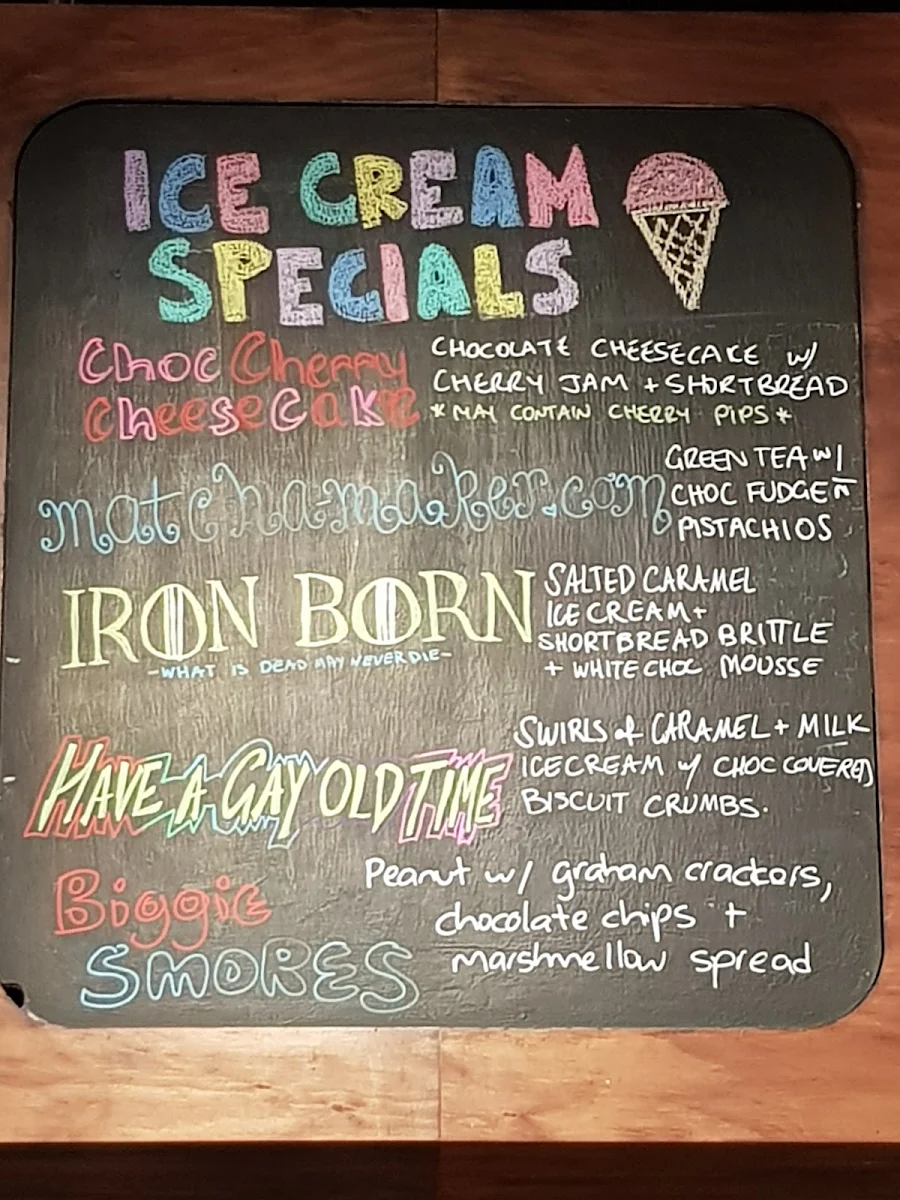 ICE CREAM
SPECIALS
Choc Cherry
CheeseCake
CHOCOLATE CHEESECAKE w/
CHERRY JAM + SHORTBREAD
*MAY CONTAIN CHERRY PIPS*
matchamaker.com
GREEN TEA w/
CHOC FUDGE n
PISTACHIOS
IRON BORN
-WHAT IS DEAD MAY NEVER DIE-
SALTED CARAMEL
ICE CREAM +
SHORTBREAD BRITTLE
+ WHITE CHOC MOUSSE
HAVE A GAY OLD TIME
SWIRLS of CARAMEL + MILK
ICECREAM w/ CHOC COVERED
BISCUIT CRUMBS.
Biggie
SMORES
Peanut w/ graham crackers,
chocolate chips +
marshmellow spread